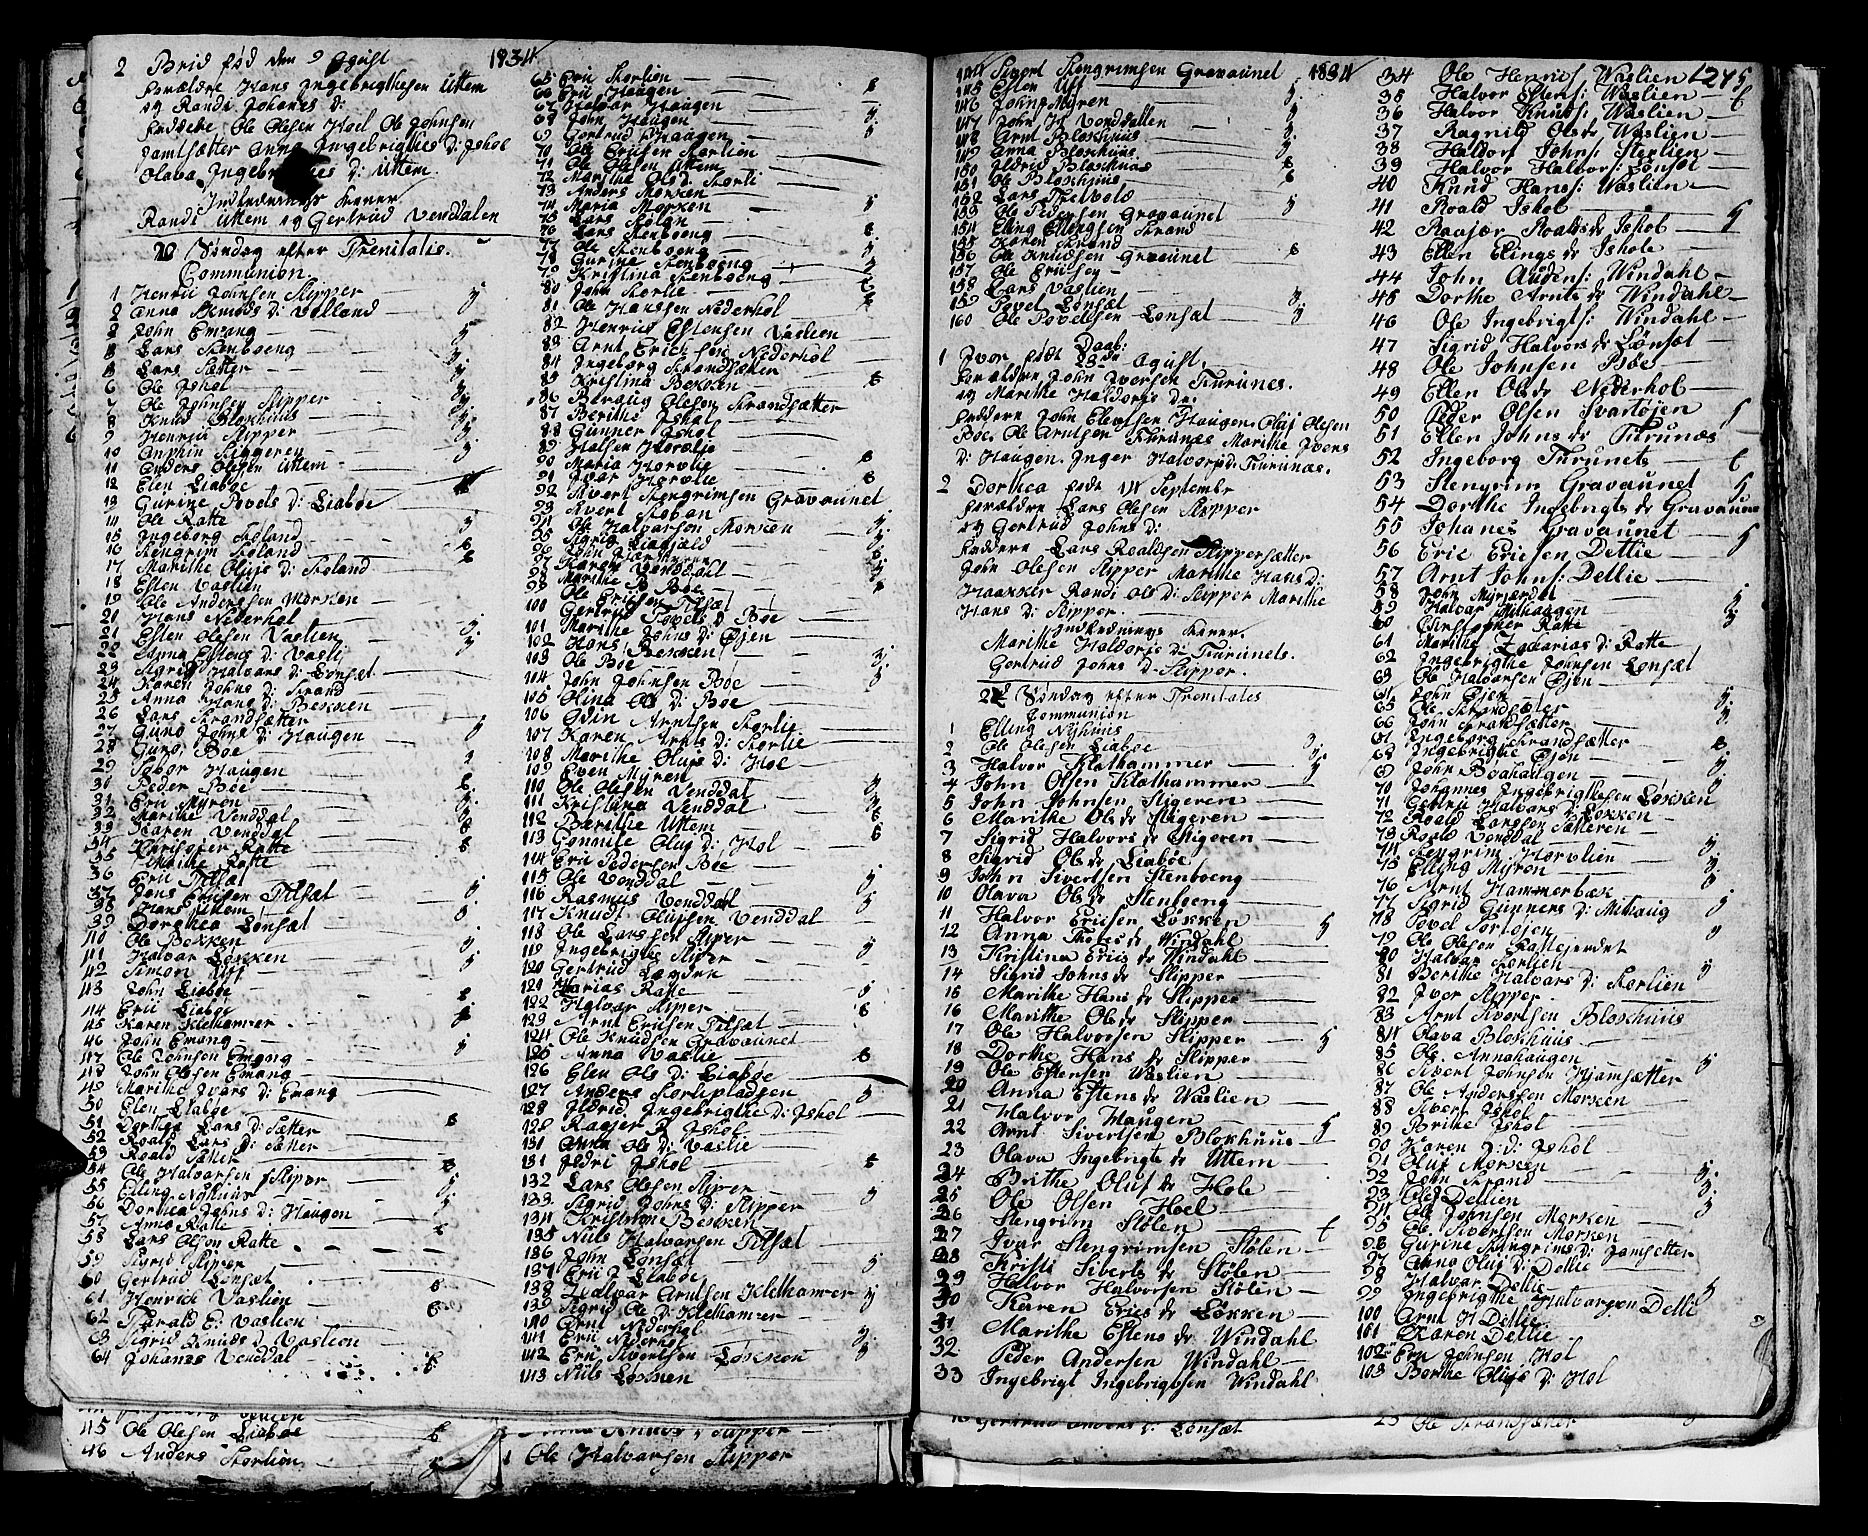 1834
2 Brid fød den 9 Agust
Forældre Hans Ingebrigthsen Uttem
og Randi Johanes d:
Faddere Ole Olesen Hoel Ole Johnsen
Jamtsætter Anne Ingebrigthes D: Ishol
Olava Ingebrigthes D: Uttem.
Indledernings Koner
Randi Uttem og Gertrud Venddalen
20 Søndag efter Trenitatis.
Communion.
1 Henrik Johnsen Slipper
2 Anna Knuds D: Volland
3 John Emang
Lars Stenboeng
Lars Sætter
6 Ole Ishol
7 Ole Johnsen Slipper
8 Knud Bloxhuus
9 Henrik Slipper
10
11 Anders Olesen Uttem
12 Elen Liabøe
13 Gurine Povels D: Liabøe
14 Ole Ratte
15 Ingeborg Stoland
16 Stengrim Stoland
17 Marithe Olufs D: Stoland
18 Esten Vaslien
19 Ole Anderssen Morken
20 Hans Nederhol
21 Esten Olesen Vaslien
22 Anna Estens D: Vasli
23 Sigrid Halvors D: Lønsæt
24 Karen Johns D: Strand
25 Anna Hans D: Bekken
26 Lars Strandsætter
27 Guro Johns D: Haugen
28 Guro Boe
29 Tobor Haugen
30 Peder Bøe
31 Eric Myren
32 Marithe Venddal
33 Karen Venddal
34 Christofer Ratte
35 Marithe Ratte
36 Eric Tilsæt
37 Jens Ericsen Tilsæt
38 Hans Uttem
39 Dorthea Lønsæt
40 Ole Bekken
41 Halvar Løkken
42 Simon Uff
43 John Liabøe
44 Eric Liabøe
45 Karen Klethamer
46 John Emang
47 Ole Johnsen Emang
48 John Olesen Emang
49 Marithe Ivars D: Emang
50 Elen Liabøe
51 Dorthea Lars D: Sætter
52 Roald Lars D: Sætter
53 Roald Sætter
54 Ole Halvarsen Slipper
55 Elling Nyhuus
56 Dorthea Johns D: Haugen
57 Anna Ratte
58 Lars Olsen Ratte
59 Sigrid Sliper
60 Gertrud Lonsæt
61 Henrick Vaslien
62 Harald E: Vaslien
63 Sigrid Knuds D: Vaslien
64 Johanes Venddal
65 Eric Storlien
66 Eric Haugen
67 Halvar Haugen
68 John Haugen
69 Gertrud Haagen
70 Ole Ericsen Storlien
71 Ole Olesen Uttem
72 Marithe Ols D Storli
73 Anders Morken
74 Maria Morken
75 Lars Støln
76 Lars Stenboeng
77 Ole Stenboeng
78 Gurine Stenboeng
79 Kristina Stenboeng
80 John Storlie
81 Ole Hanssen Nederhol
82 Henrick Estensen Vaslien
83 Arnt Ericksen Nederhol
84 Ingeborg Strandsætter
85 Kristina Bekken
86 Beraug Olesen Strandsætter
87 Berithe Ishol
88 Gunner Ishol
89 Halsen Horvlie
90 Maria Horvlie
91 Ivar Horvlie
92 Sivert Stengrimsen Gravaunet
93 Sivert Stoban
94 Ole Halvarsen Morken
95 Sigrid Liafjald
96 John
97 Karen Venddal
98 Marithe B Boe
99 Ole Ericsen Tilsæt
100 Gertrud Povels D: Boe
101 Marithe Johns D: Øien
102 Hans Bekken
103 Ole Boe
104 John Johnsen Boe
105 Olina Ols D: Boe
106 Odin Arntsen Storlie
107 Karen Arnts D: Storlie
108 Marithe Olufs D: Hoe
109 Even Myren
110 Ole Olesen Venddal
111 Kristina Venddal
112 Berithe Uttem
113 Gonnile Oluf D: Hol
114 Eric Pedersen Boe
115 Ole Venddal
116 Rasmus Venddal
117 Knudt Olufsen Venddal
118 Ole Larssen Sliper
119 Ingebrigthe Sliper
120 Gertrud Løgden
121 Zarias Ratte
122 Halvar Sliper
123 Arnt Ericsen Tilsæt
124 Ole Knudsen Gravaunet
125 Anna Vaslie
126 Elen Ols D: Liabøe
127 Anders Storlipladsen
128 Ildrid Ingebrigthe D: Ishol
129 Raajer R Ishol
131 Anna Ole D: Vaslie
131 Jedri Ishol
132 Lars Olesen Sliper
133 Sigrid Johns D: Slipper
134 Kristine Bekken
135 Nils Halvarsen Tilsæt
136 John Lønsæt
137 Eric J Liabøe
138 Halvar Arntsen Klethamer
139 Sigrid Ole D: Klethamer
140 Arnt Nederhol
141 Eric Nederhol
142 Eric Sivertsen Løkken
143 Nils Løkken
45 Ole Olesen Liabøe
46 Anders Storlien
1 Ole Halvarsen Slipper
1834
1245
144 Sigort Stengrimsen Gravaunet
145 Esten Uff
146 John Myren
147 John H Venddallen
148 Arnt Bloxhuus
149 Anna Bloxhuus
150 Ildrid Bloxhuus
151 Ole Bloxhuus
152 Lars Thelvold
153 Ole Pedersen Gravaunet
154 Elling Ellingsen Strand
155 Karen Strand
156 Ole Knudsen Gravaunet
157 Ole Ericsen
158 Lars Vaslien
159 Povel Lonsæt
160 Ole Povelsen Lonsæt
Daab:
1 Ivor født 28de Agust.
Forældre John Iversen Turunes.
og Marithe Haldors De:
Faddere John Elevtsen Haugen Oluf Olesen
Boe. Ole Arntsen Turunæs Marithe Ivers
D: Haugen. Inger Halvorsd: Turunæs.
2 Dorthea født 14 Septembr
Forældre Lars Olesen Slipper
og Gertrud Johns D:
Faddere Lars Roaldsen Slippersætter
John Olesen Slipper Marithe Hans D:
Haakker Randi Ols D: Slipper Marithe
Hans D: Slipper.
Indledernings Koner.
Marithe Haldors D: Turunets.
Gertrud Johns D: Slipper.
22 Søndag efter Trenitales
Communion
1 Elling Nyhuus
2 Ole Olesen Liabøe
3 Halvor Klathammer
4 John Olsen Klathammer
5 John Johnsen Stigeren
6 Marithe Ols dr Stigeren
7 Sigrid Halvors dr Stigeren
8 Sigrid Ols dr Liabøe
9 John Sivertsen Stenboeng
10 Olava Ols dr Stenboeng
11 Halvor Ericsen Løkken
12 Anna Thores dr Windahl
13 Kristina Erics dr Windahl
14 Sigrid Johns dr Slipper
15 Marithe Hans dr Slipper
16 Marithe Ols dr Slipper
17 Ole Halvorsen Slipper
18 Dorthe Hans dr Slipper
19 Ole Estensen Waslien
20 Anna Estens dr Waslien
21 Halvor Haugen
22 Arnt Sivertsen Bloxhuus
23 Olava Ingebrigts dr Uttem
24 Brithe Oluf dr Hole
25 Ole Olsen Hoel
26 Stengrim Stølen
27 Ivar Stengrimsen Stølen
28 Kristi Siberts dr Stølen
29 Halvor Halvorsen Stølen
30 Karen Erics dr Løkken
31 Marithe Estens dr Windahl
32 Peder Andersen Windahl
33 Ingebrigt Ingebrigtsen Windahl
34 Ole Henricf: Waslien
35 Halvor Estens: Waslien
36 Halvor Knudf: Waslien
37 Ragnild Ols dr Waslien
38 Haldor Johns: Sterlien
39 Halvor Halvors: Lønsæt
40 Knud Hans: Waslien
41 Roald Ishol
42 Raajær Roalds dr Ishol
43 Ellen Elings dr Ishole
44 John Audens: Windahl
45 Dorthe Arnts dr Windahl
46 Ole Ingebrigts: Windahl
47 Sigrid Halvors dr Lønsæt
48 Ole Johnsen Bøe
49 Ellen Ols dr Nederhol
50 Peder Olsen Svartøjen
51 Ellen Johns dr Turunæs
52 Ingeborg Turunets
53 Stengrim Gravaunet
54 Dorthe Ingebrigts dr Gravaune
55 Johanes Gravaunet
56 Eric Ericsen Detlie
57 Arnt Johns: Dellie
58 John Myrjærdet
59 Halvar Mithaagen
60 Christopher Ratte
61 Marithe Zakarias D: Ratte
62 Ingebrigthe Johnsen Lonsæt
63 Ole Halvarsen Øjen
64 John Øjen
65 Ole Strandsæter
66 John Strandsætter
67 Ingeborg Strandsætter
68 Ingebrigthe Øjen
69 John Boahaugen
70 Johannes Ingebrigthesen Løkken
71 Gertrii Halvars D: Løkken
72 Roald Larssen Sætteren
73 Roald Venddal
74 Stengrim Horvlien
75 Elling Myren
76 Arnt Hammerbæk
77 Sigrid Gunners D: Mithaug
78 Povel Sortøjen
79 Ole Olesen Rattejerdet
80 Halvar Storlien
81 Berithe Halvars D: Storlien
82 Ivor Slipper
83 Arnt Sivertsen Bloxhuus
84 Olava Bloxhuus
85 Ole Annahaugen
86 Sivert Johnsen Hjamsætter
87 Ole Anderssen Morken
88 Sivert Ishol
89 Brithe Ishol
90 Karen J: D: Ishol
91 Oluf Morken
92 John Strand
93 Ole Dellien
94 Ole Johnsen Morken
95 Ole Sivertsen Morken
96 Gurine Stengrims D: Jamsetter
97 Anna Oluf D: Dellie
98 Halvar Dellie
99 Ingebrigthe Halvarsen Delli
100 Arnt H Dellie
101 Karen Dellie
102 Eric Johnsen Hol
103 Berthe Olufs D: Hol
25 Ole Strandsætter